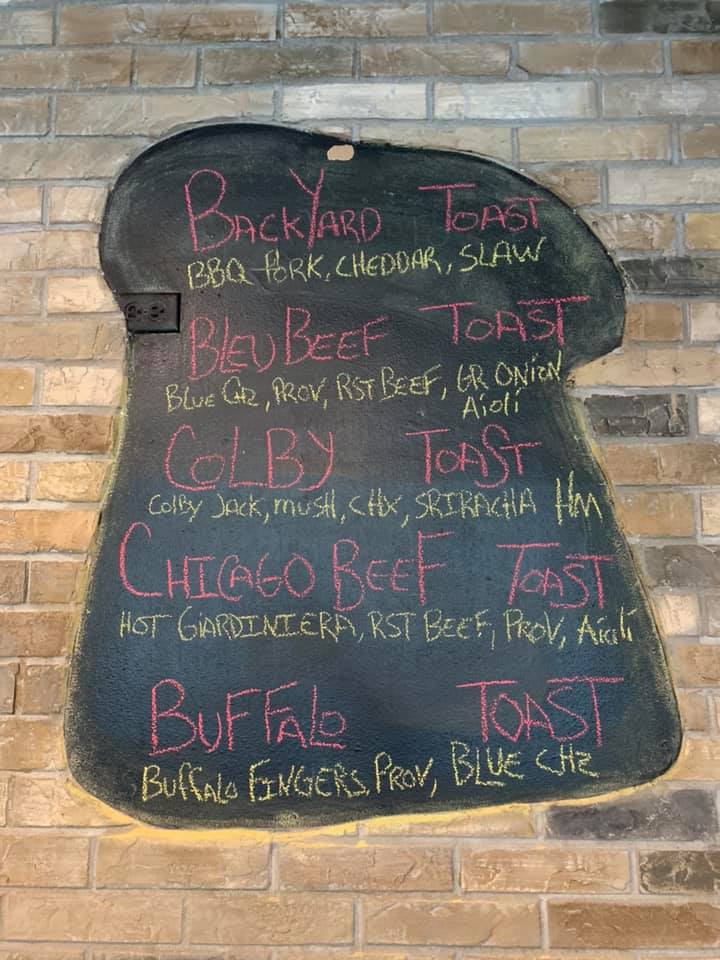 BACKYARD TOAST
BBQ PORK, CHEDDAR, SLAW
BLEU BEEF TOAST
BLUE CHZ, PROV, RST BEEF, GR ONION
Aioli
COLBY TOAST
COLBY JACK, MUSH, CHX, SRIRACHA HM
CHICAGO BEEF TOAST
HOT GIARDINIERA, RST BEEF, PROV, Aioli
BUFFALO TOAST
BUFFALO FINGERS, PROV, BLUE CHZ